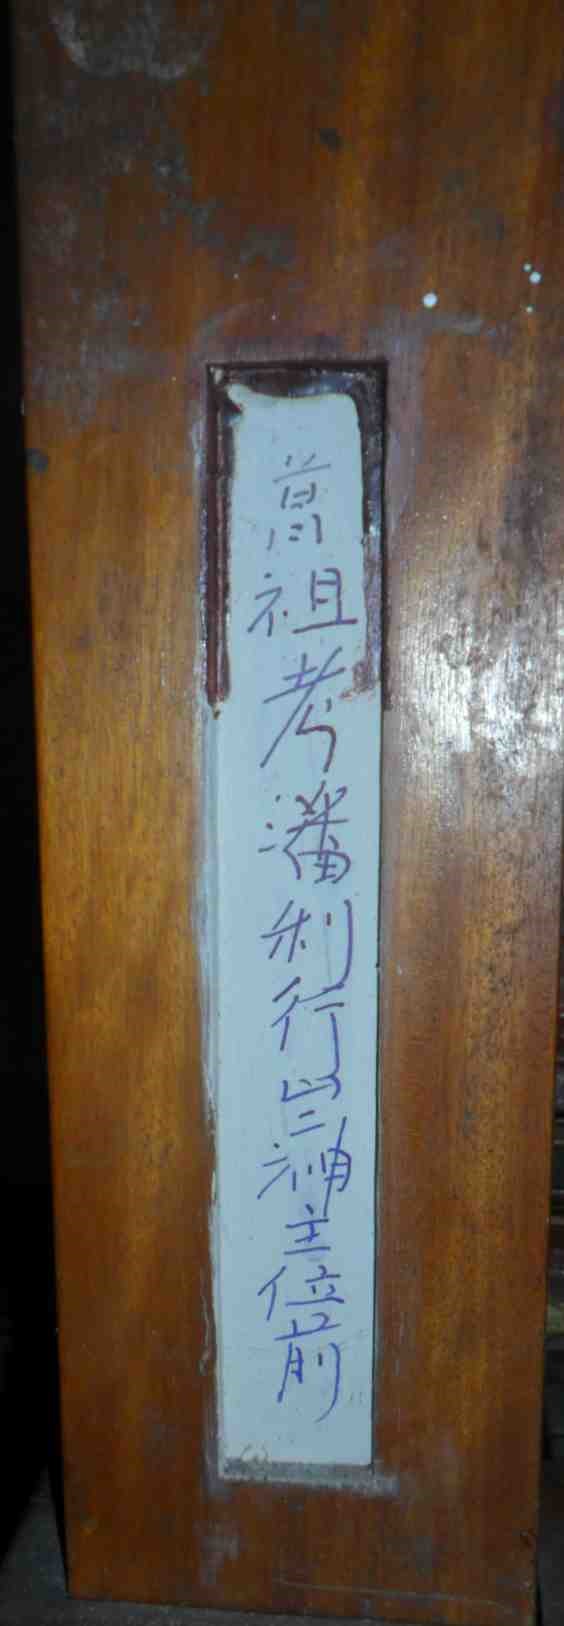 曾祖考潘利行三神主位前